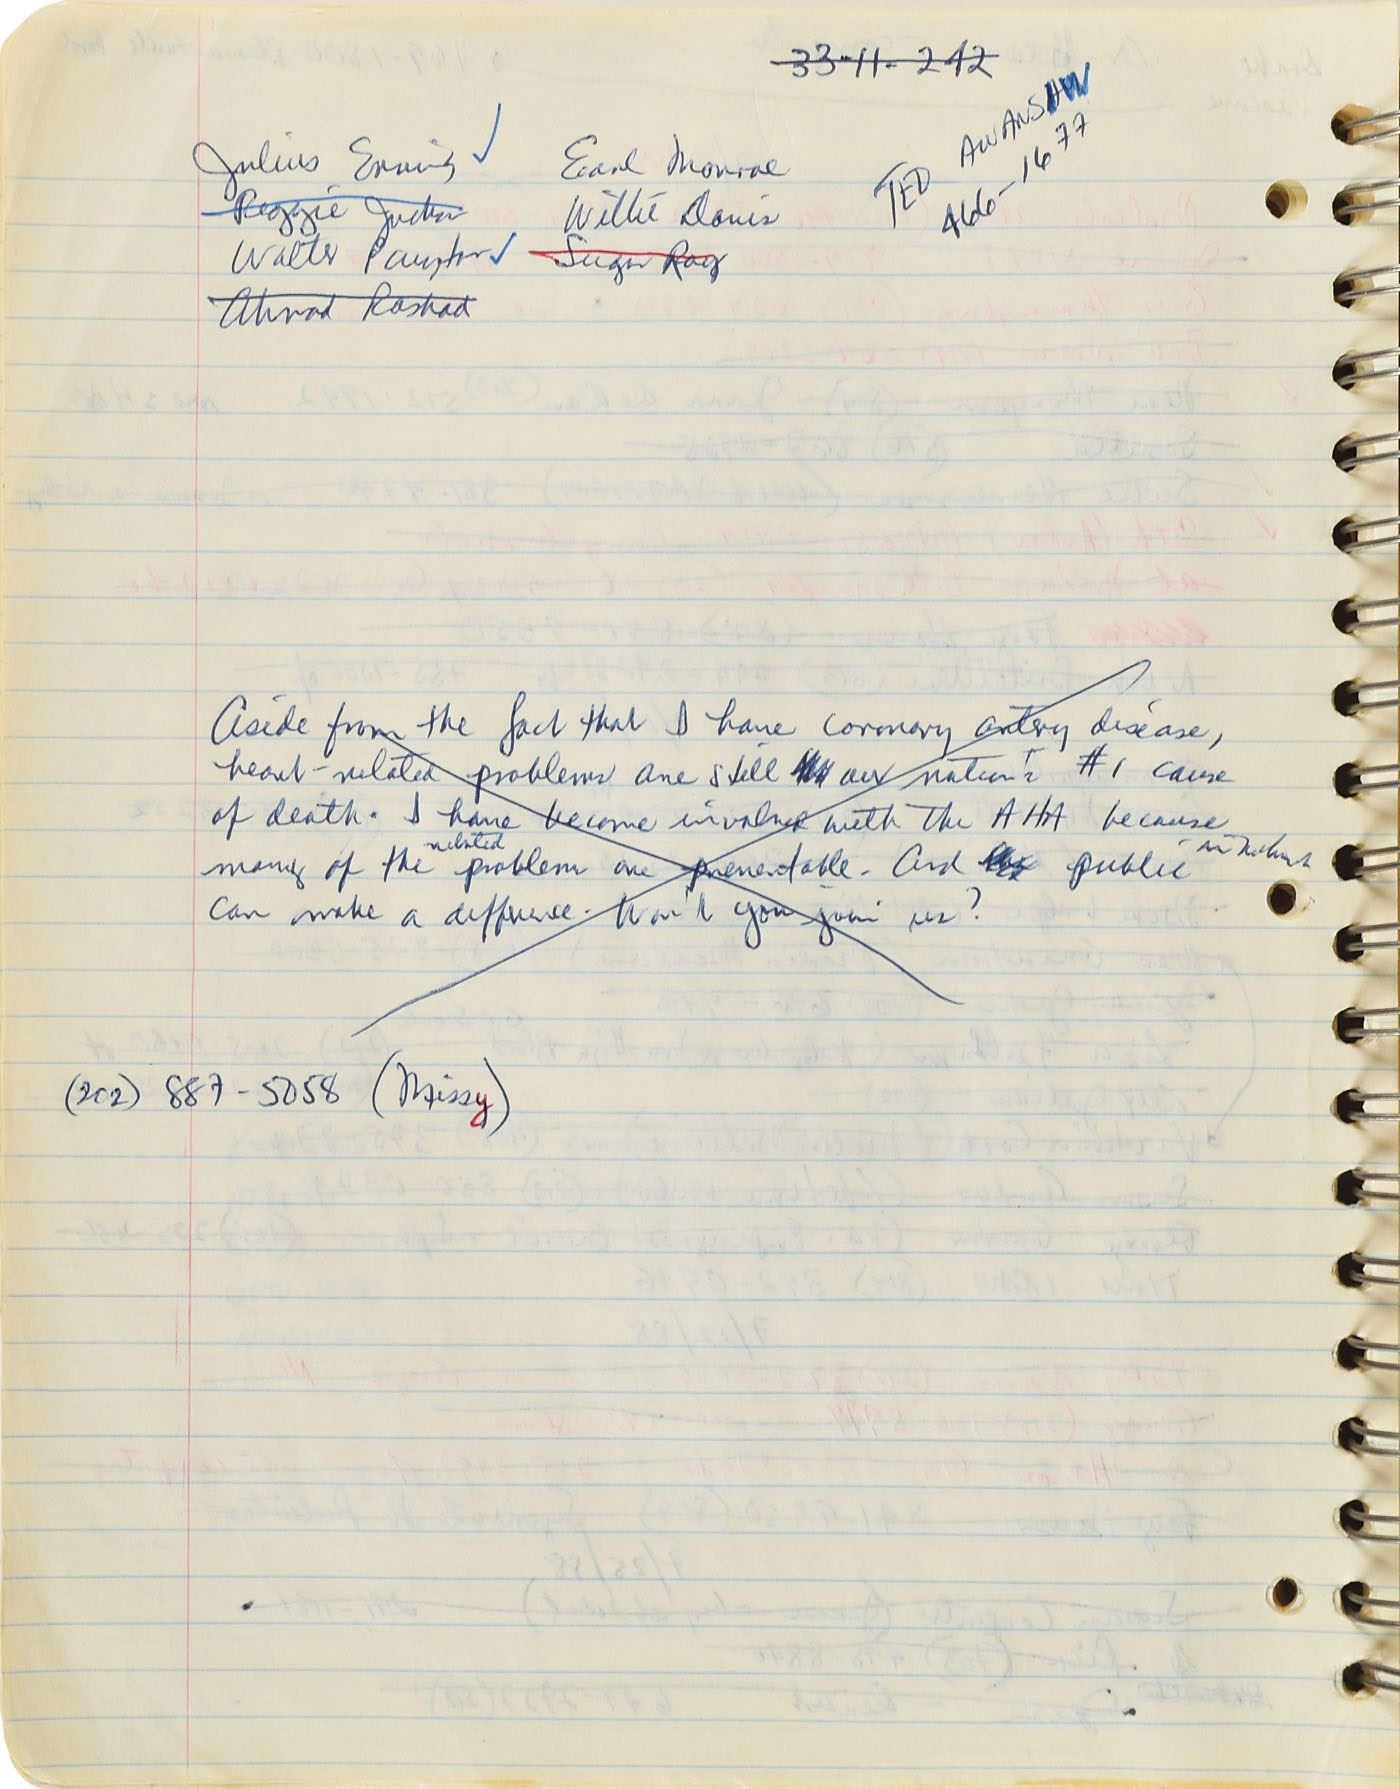 33-11-242
TED AWANSHW
466-1677
Julius Erving ✓ Earl Monroe
Reggie Jackson Willie Davis
Walter Payton ✓ Sugar Ray
Ahmad Rashad
Aside from the fact that I have coronary artery disease,
heart-related problems are still our nation's #1 cause
of death. I have become involved with the AHA because
many of the related problems are preventable. And public
can make a difference. Won't you join us?
(202) 887-5058 (Missy)